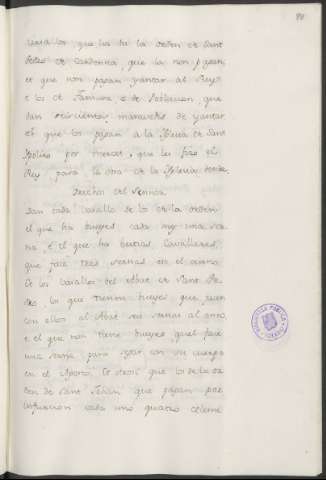 salvo los que ha hi la orden de Sant
Pedro de Cardenna, que la non pagan,
et que non pagan yantar al Rey:
e los de Tamara, e de Poblacion, que
dan seiscientos maravedis de yantar.
et que los pagan a la Iglesia de Sant
Ipolito por mercet, que les fizo el
Rey para la obra de la Iglesia dende.
Derechos del Sennor.
Dan cada vasallo de los de la orden
el que ha bueyes cada mes una ser
na, e el que ha bestias Cavallares,
que face tres sernas en el anno.
Et los vasallos del Abat de Sant Pe
dro, los que tienen bueyes, que facen
con ellos al Abat seis sernas al anno,
e el que non tiene bueyes, quel face
una serna para segar con su cuerpo
en el Agosto. Et otrosi que los de la or
den de Sant Johan, que pagan por
infurcion cada uno quatro celemi